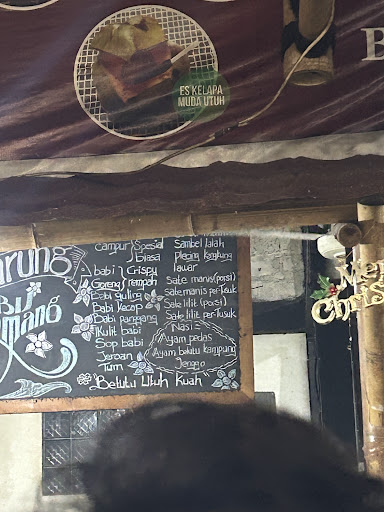 ES KELAPA
MUDA UTUH
B
arung
Bu
mang
Campur Spesial
biasa
babi Crispy
Goreng rempah
Babi guling
Babi kecap
Babi panggang
Kulit babi
Sop babi
Seroan
Tum
Betutu Utuh Kuah
Sambel lalah
plecing kangkung
lawar
Sate manis (porsi)
Sate manis per-tusuk
Sate lilit (porsi)
Sate lilit per-tusuk
Nasi
Ayam pedas
Ayam betutu kampung
Jenggo
Merry
Christ